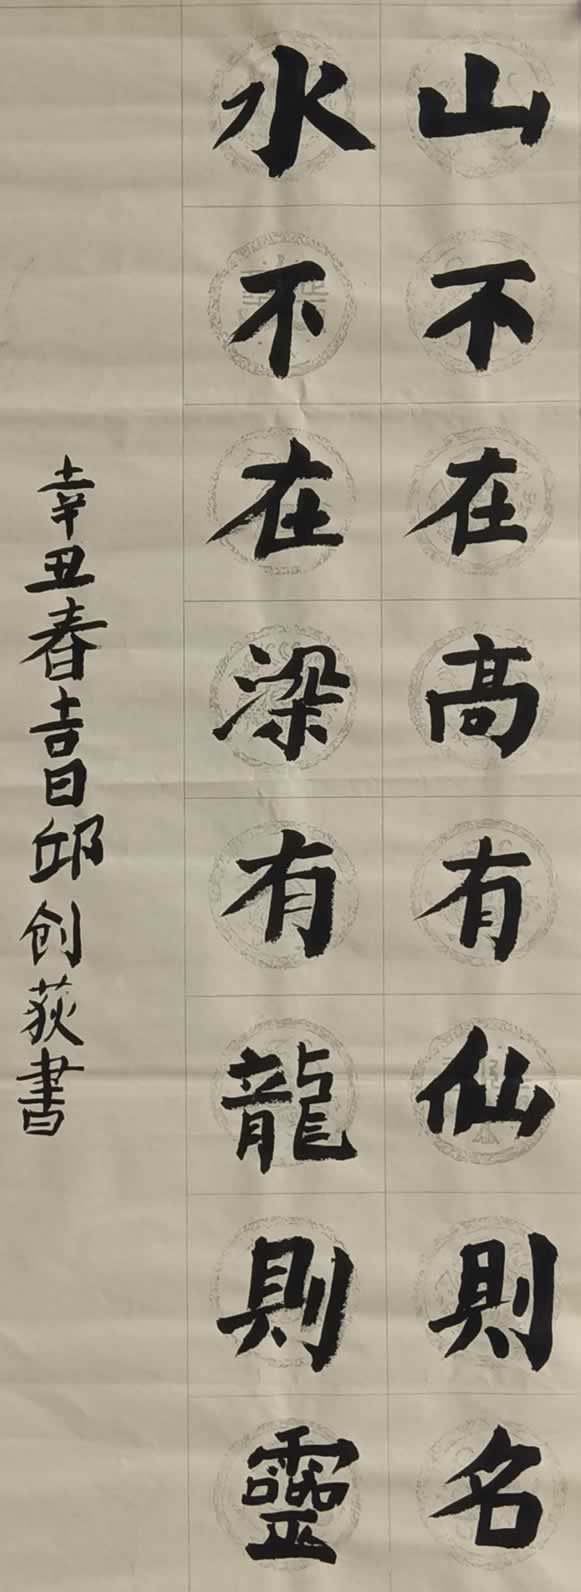 山不在高有仙則名
水不在梁有龍則靈
辛丑春吉日邱创荻書